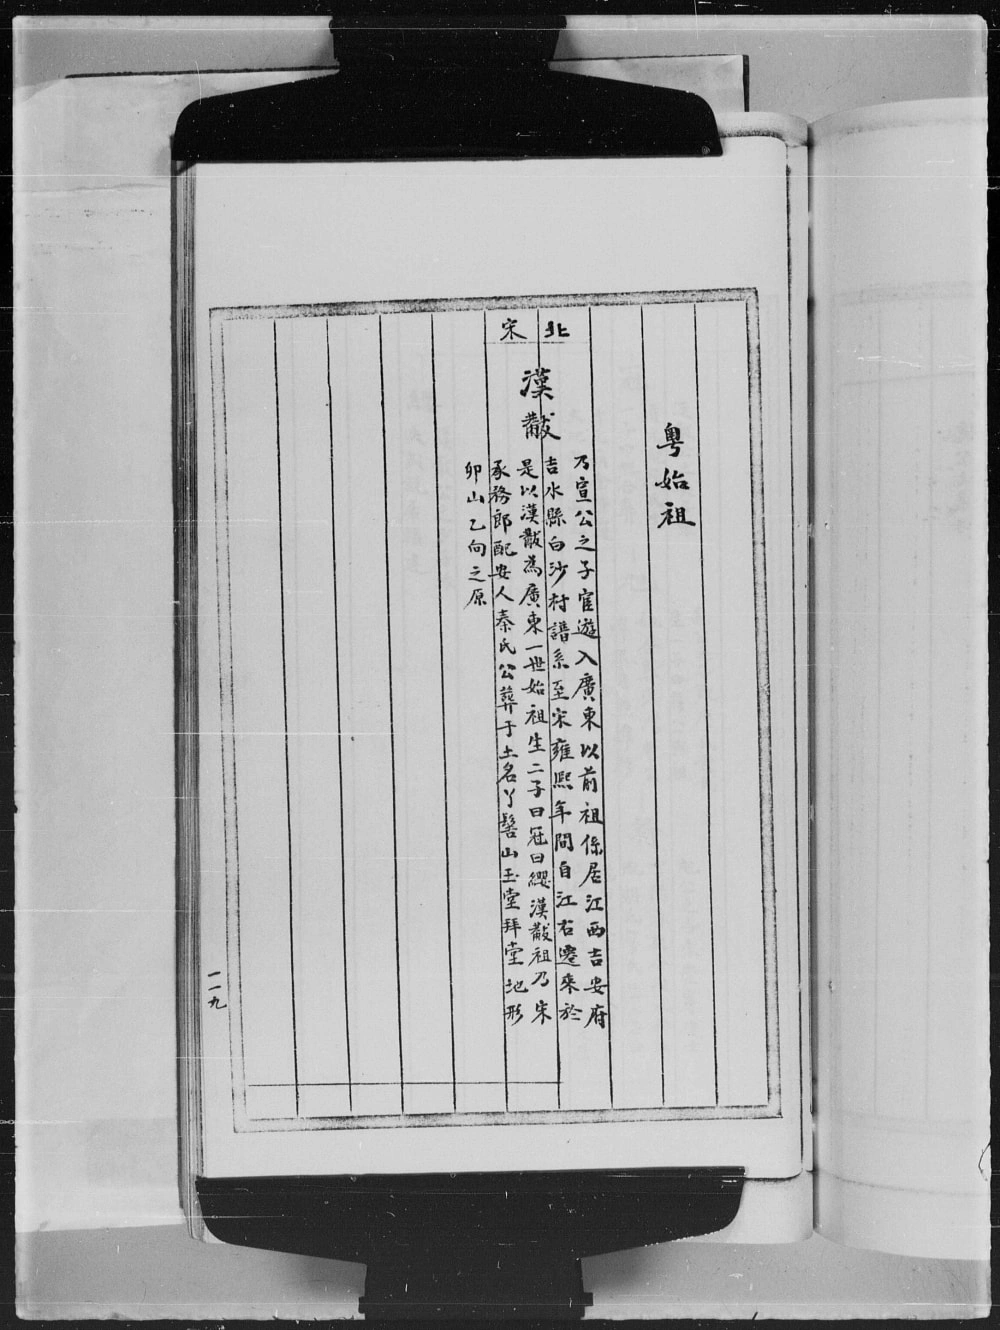 粵始祖
北宋
漢黻
乃宣公之子宦遊入廣東以前祖係居江西吉安府
吉水縣白沙村譜系至宋雍熙年間自江右遷來於
是以漢黻為廣東一世始祖生二子曰冠曰纓漢黻祖乃宋
承務郎配安人秦氏公葬于土名丫髻山玉堂拜堂地形
卯山乙向之原
一一九